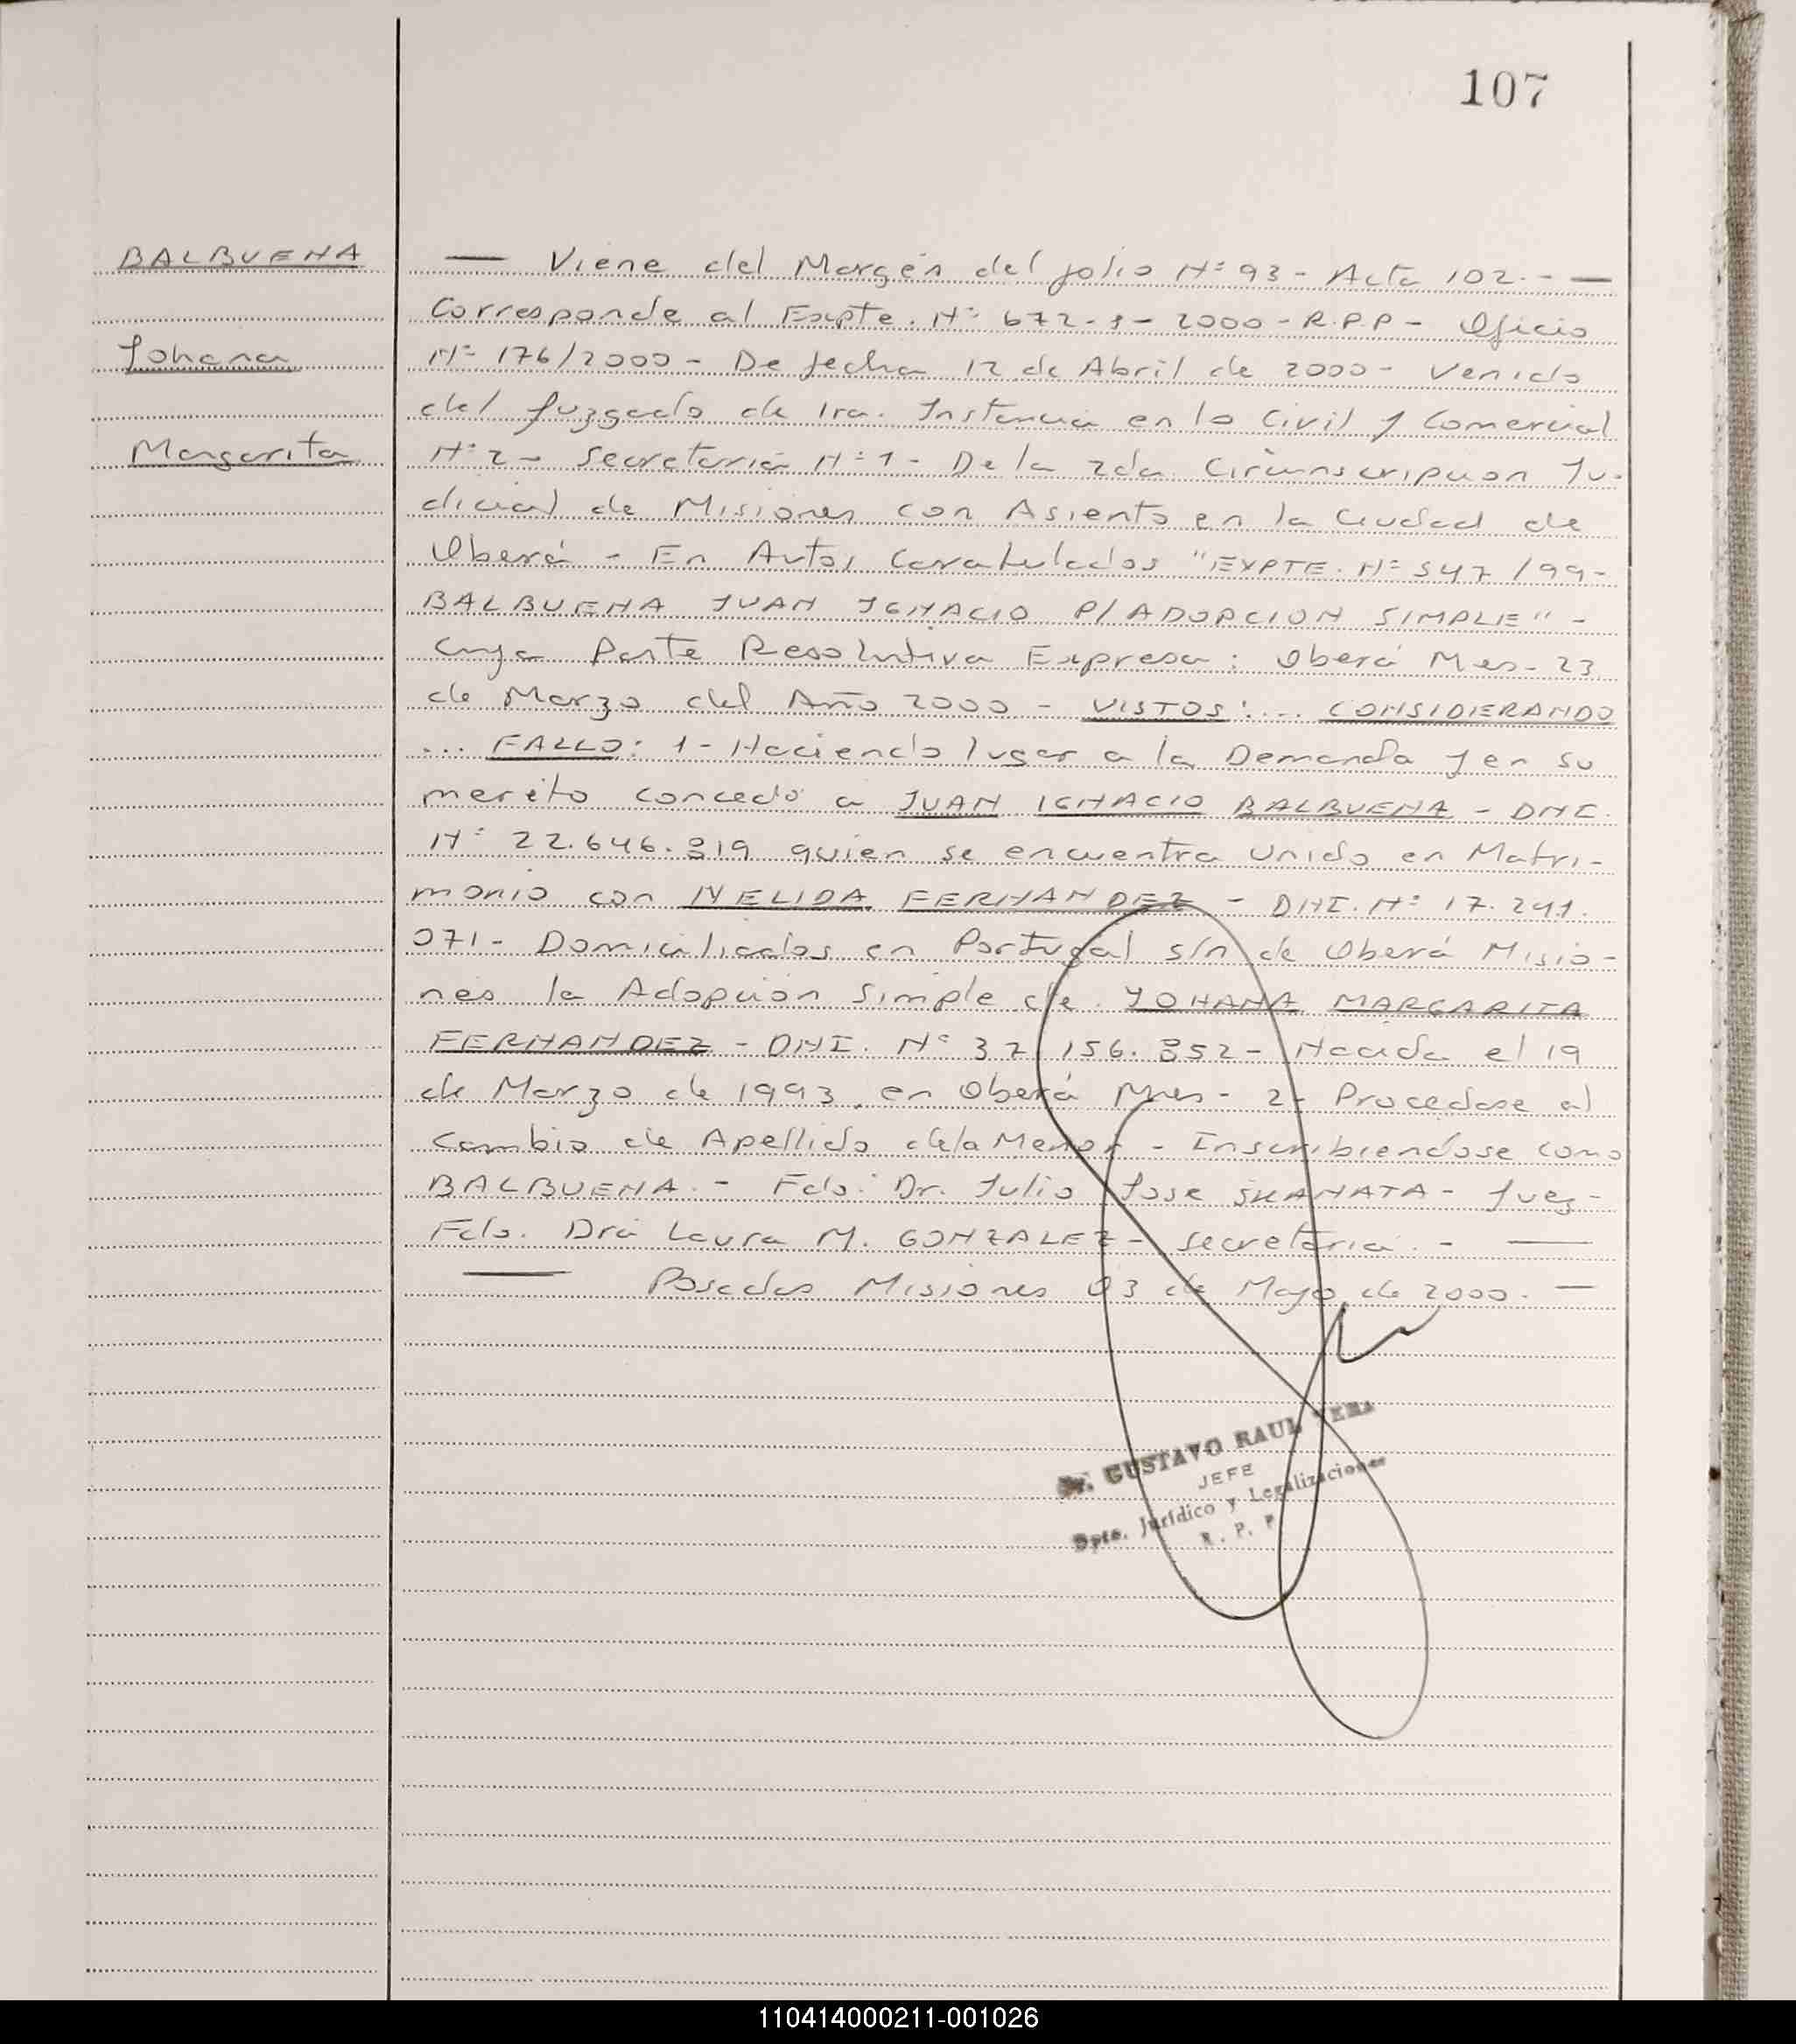 107
BALBUENA
Yohana
Margarita
— Viene del Margen del folio Nº 93 - Acta 102. - —
Corresponde al Expte. Nº 672-3-2000 - R.P.P - Oficio
Nº 176/2000 - De fecha 12 de Abril de 2000 - Venido
del Juzgado de 1ra. Instancia en lo Civil y Comercial
Nº 2 - Secretaria Nº 1 - De la 2da Circunscripcion Ju-
dicial de Misiones con Asiento en la Ciudad de
Oberá - En Autos Caratulados "EXPTE. Nº 547/99-
BALBUENA JUAN IGNACIO P/ADOPCION SIMPLE" -
Cuya Parte Resolutiva Expresa: Oberá Mnes- 23
de Marzo del Año 2000 - VISTOS:... CONSIDERANDO
... FALLO: 1 - Haciendo lugar a la Demanda y en su
merito concedo a JUAN IGNACIO BALBUENA - DNI.
Nº 22.646.819 quien se encuentra unido en Matri-
monio con NELIDA FERNANDEZ - DNI. Nº 17.241.
071 - Domiciliados en Portugal s/n de Oberá Misio-
nes la Adopcion Simple de YOHANA MARGARITA
FERNANDEZ - DNI. Nº 37.156.852 - Nacida el 19
de Marzo de 1993 en Oberá Mnes - 2- Procedase al
Cambio de Apellido de la Menor - Inscribiendose como
BALBUENA. - Fdo: Dr. Julio Jose SKANATA - Juez -
Fdo. Dra Laura M. GONZALEZ - Secretaria. - —
— Posadas Misiones 03 de Mayo de 2000. —
Dr. GUSTAVO RAUL VERA
JEFE
Dpto. Jurídico y Legalizaciones
R. P. P
110414000211-001026